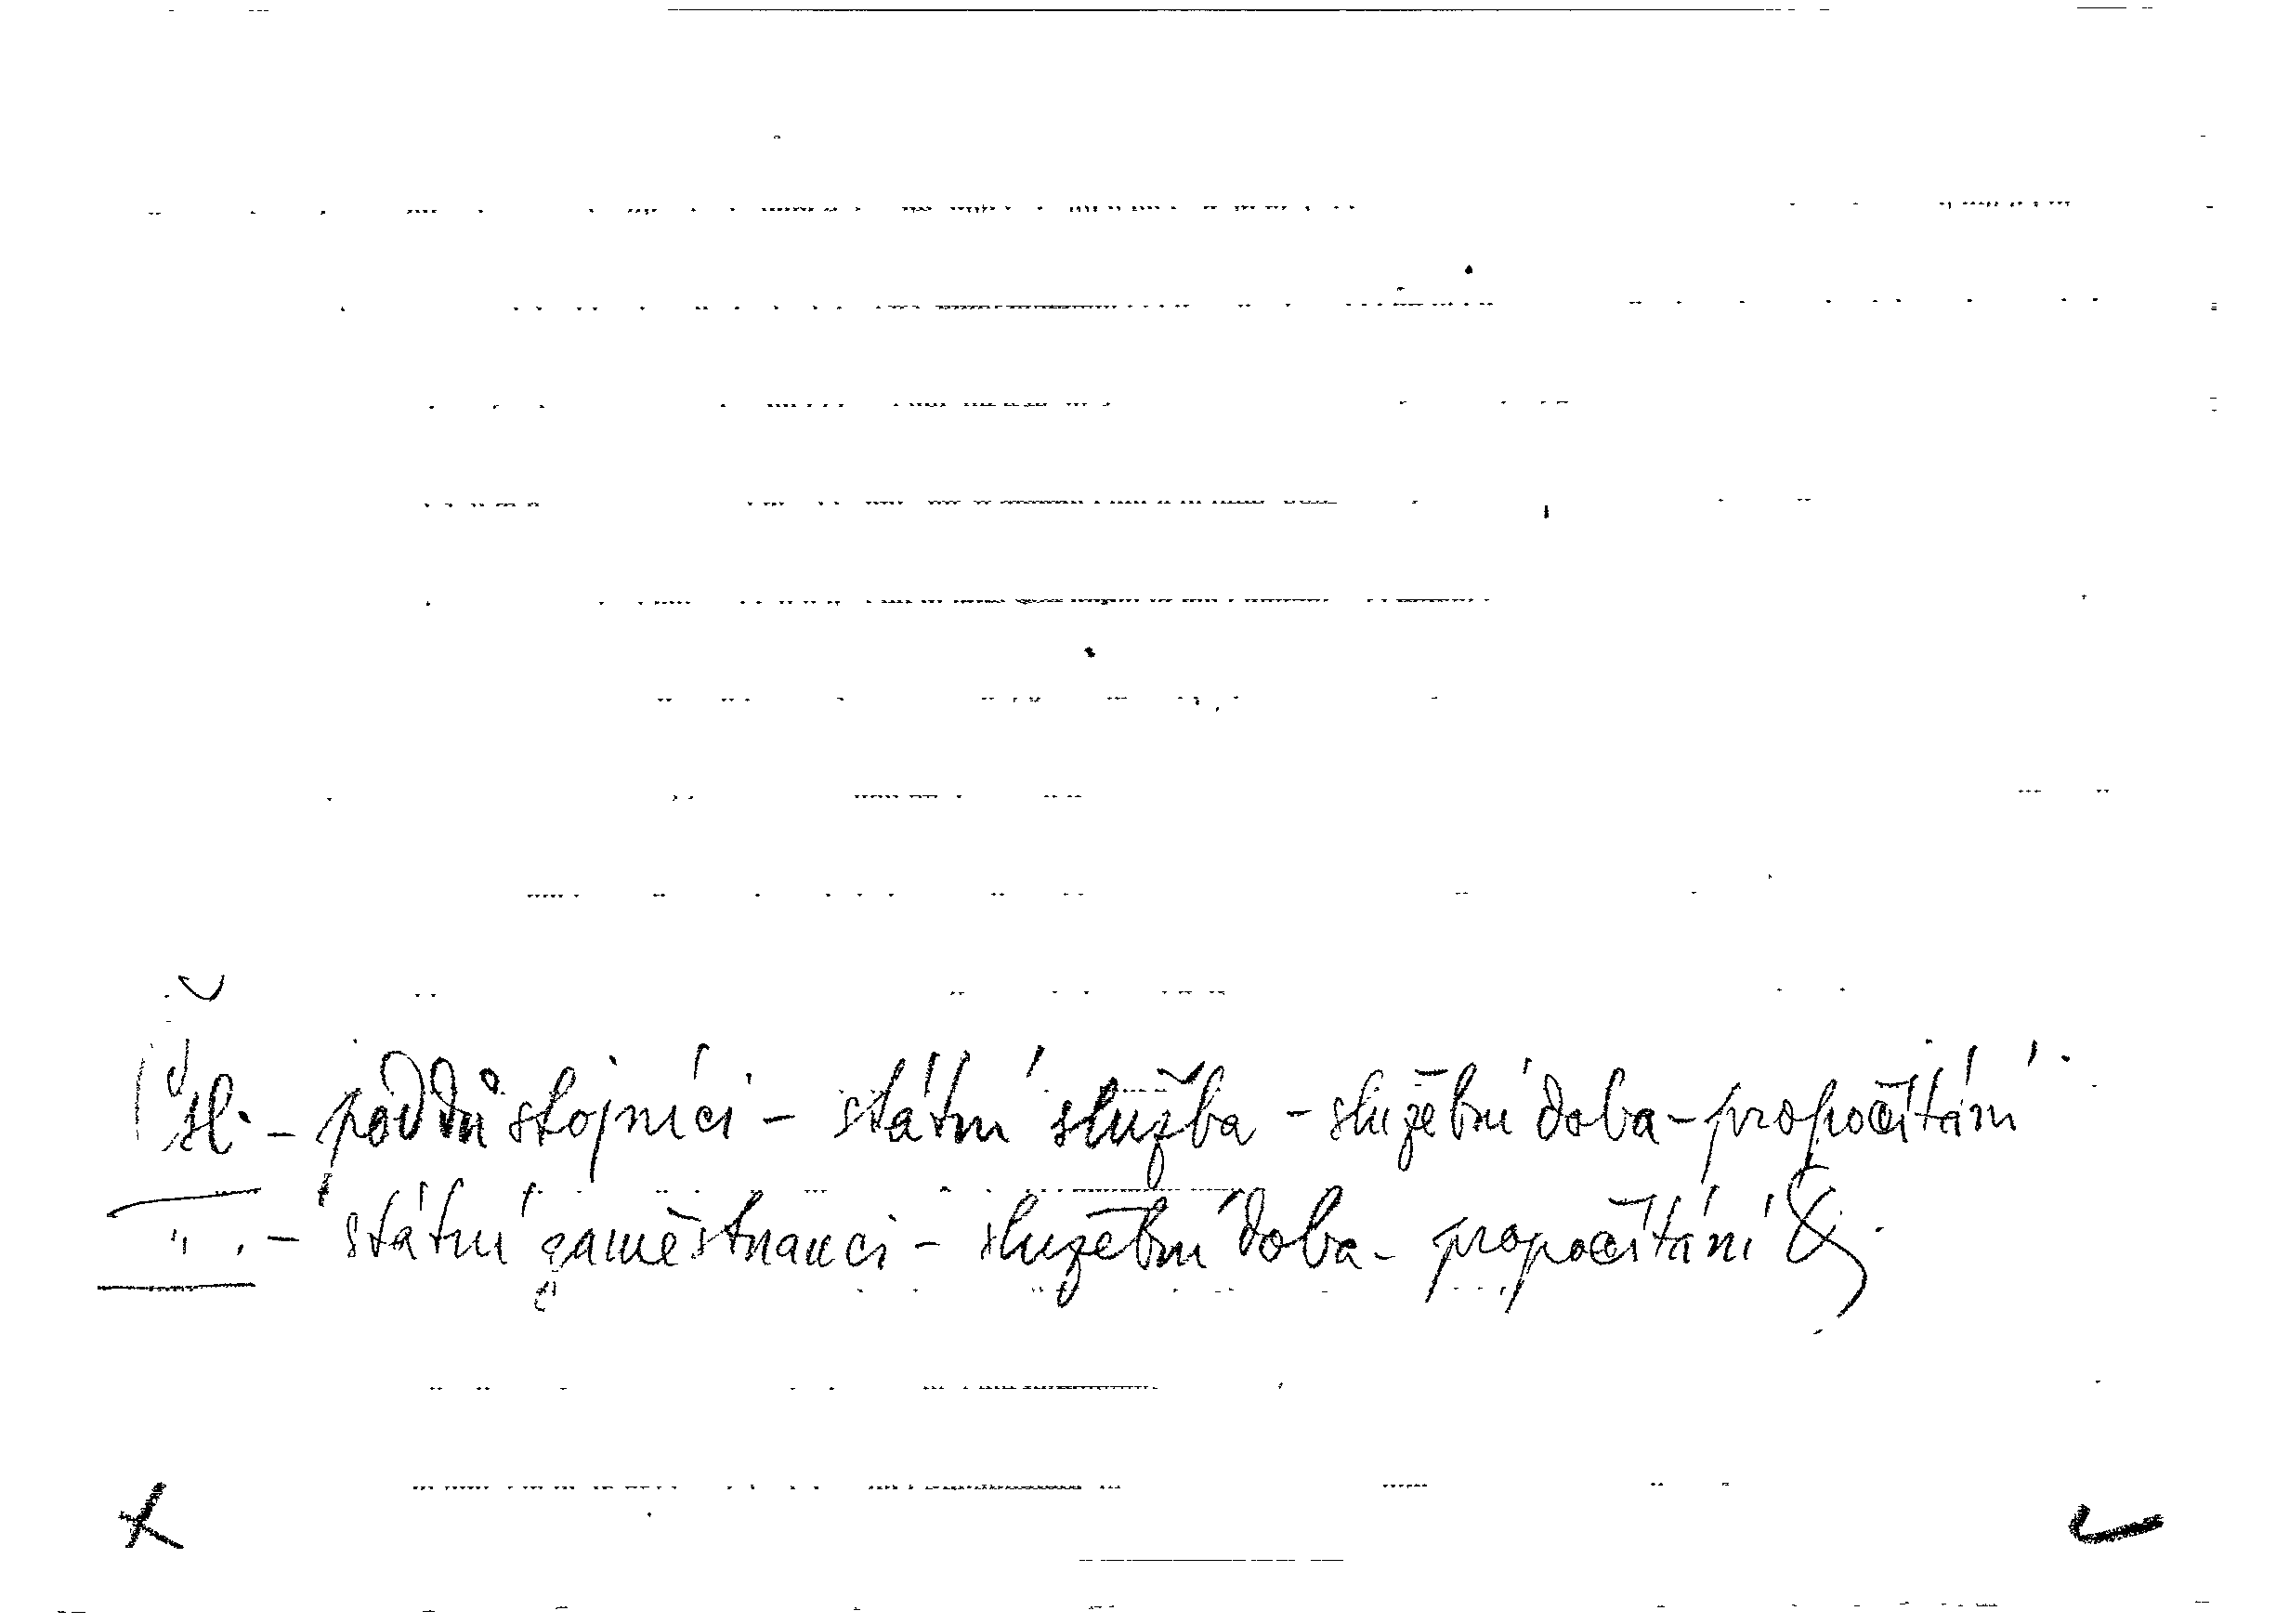 sl. - poddůstojníci - státní služba - služební doba - propočítání
" . - státní zaměstnanci - služební doba - propočítání